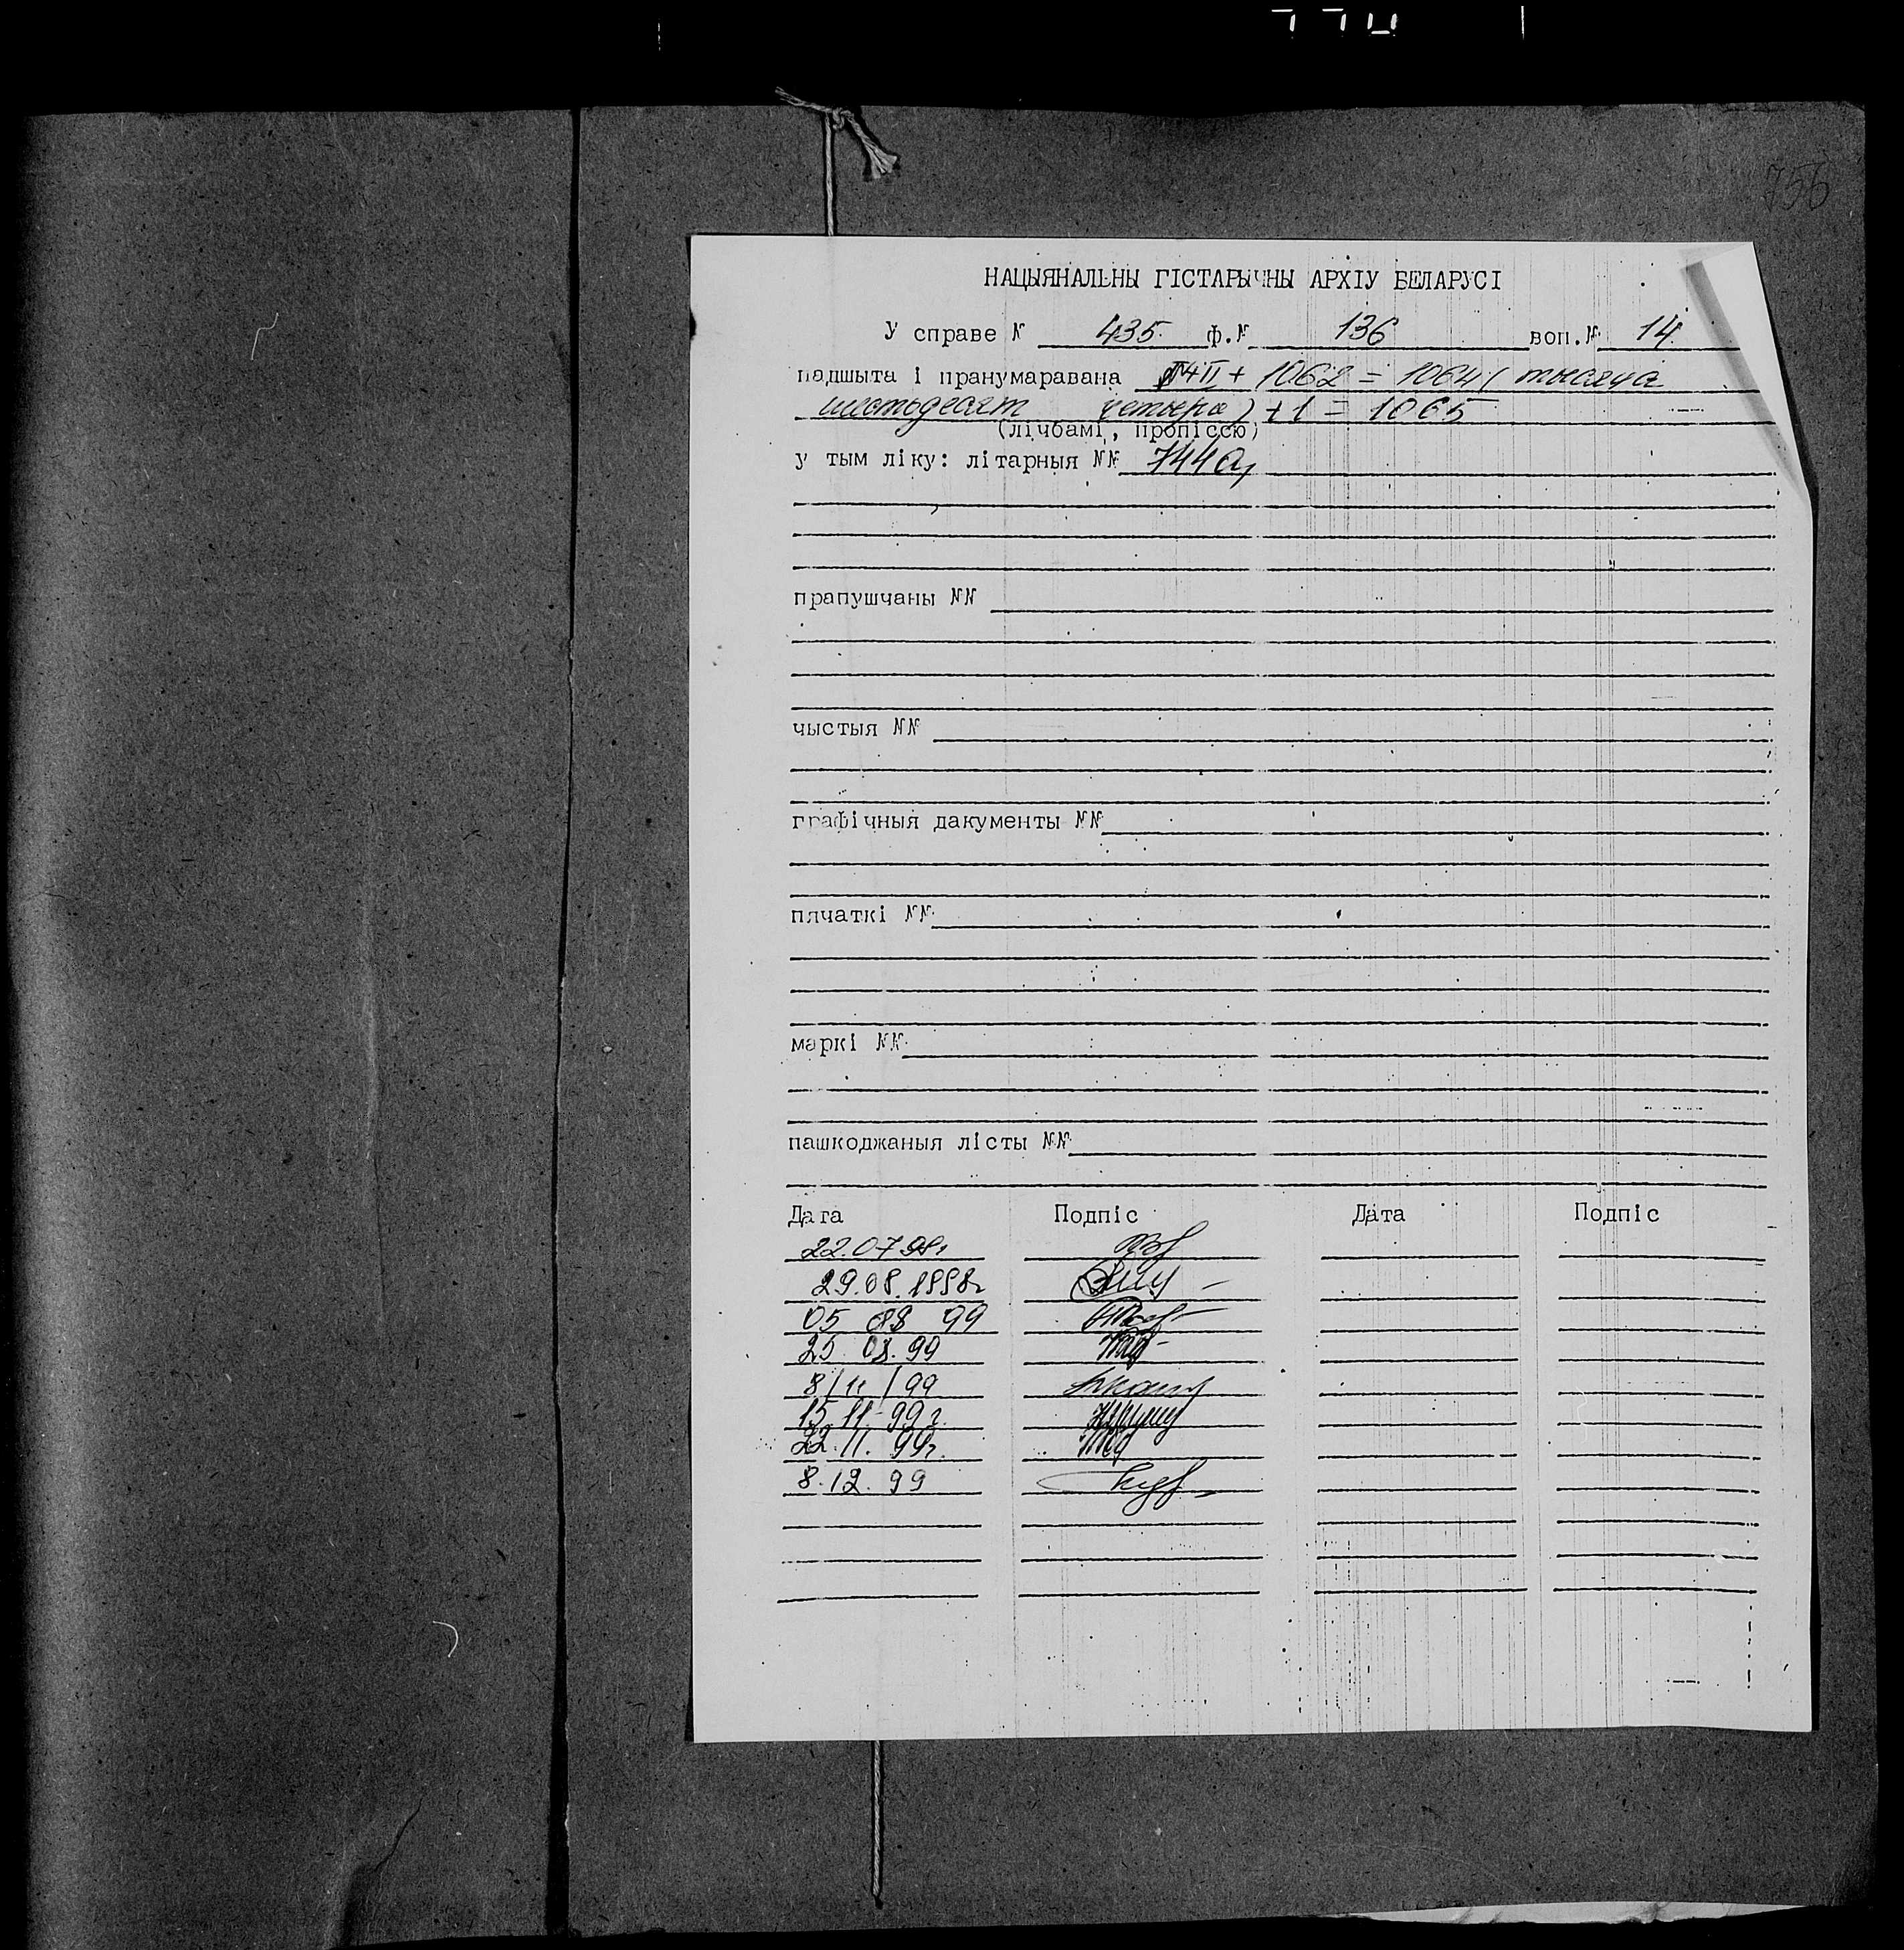 755
НАЦЫЯНАЛЬНЫ ГІСТАРЫЧНЫ АРХІУ БЕЛАРУСІ
У справе № 435 ф.№ 136 воп.№ 14
падшыта і пранумаравана + 1062 = 1064 ( тысяча
шестьдесят четыере) + 1 = 1065
(лічбамі, пропіссю)
у тым ліку: літарныя №№ 744а,
прапушчаны №№
чыстыя №№
графічныя дакументы №№
пячаткі №№
маркі №№
пашкоджаныя лісты №№
Дата Подпіс Дата Подпіс
22.07.98г
29.08.1998г
05 08 99
25.08.99
8/11/99
15.11.99г.
22.11.99г.
8.12.99